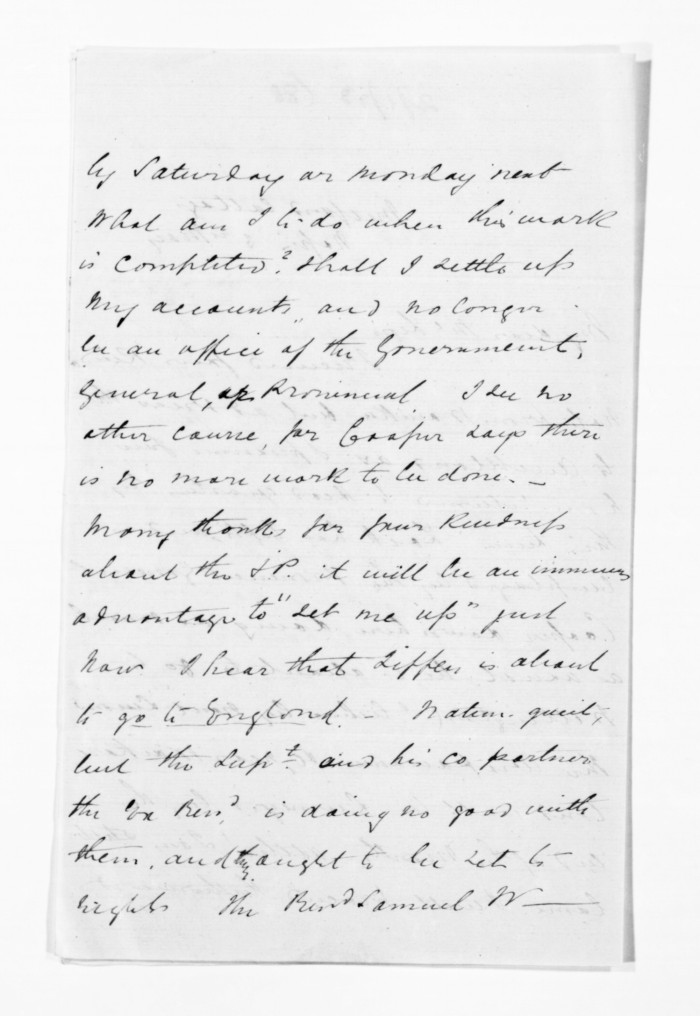 by Saturday or Monday next
What am I to do when this work
is completed? Shall I settle up
my accounts, and no longer
be an officer of the Government,
General, or Provincial I see no
other course, for Cooper says there
is no more work to be done. _
Many thanks for your kindness
about the J.P. it will be an immense
advantage to "set me up" just
now I hear that Ziffen is about
to go to England. - Natives quiet,
but the Supt. and his co partner
the Revd. is doing no good with
them, and they ought to be set to
rights the Revd Samuel W—